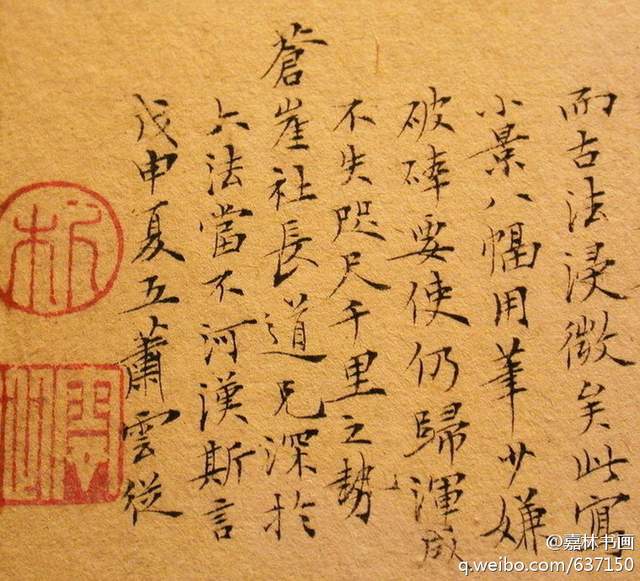 而古法浸微矣此寫
小景八幅用筆少嫌
破碎要使仍歸渾成
不失咫尺千里之勢
蒼崖社長道兄深於
六法當不河漢斯言
戊申夏五蕭雲從
@嘉林书画
q.weibo.com/637150